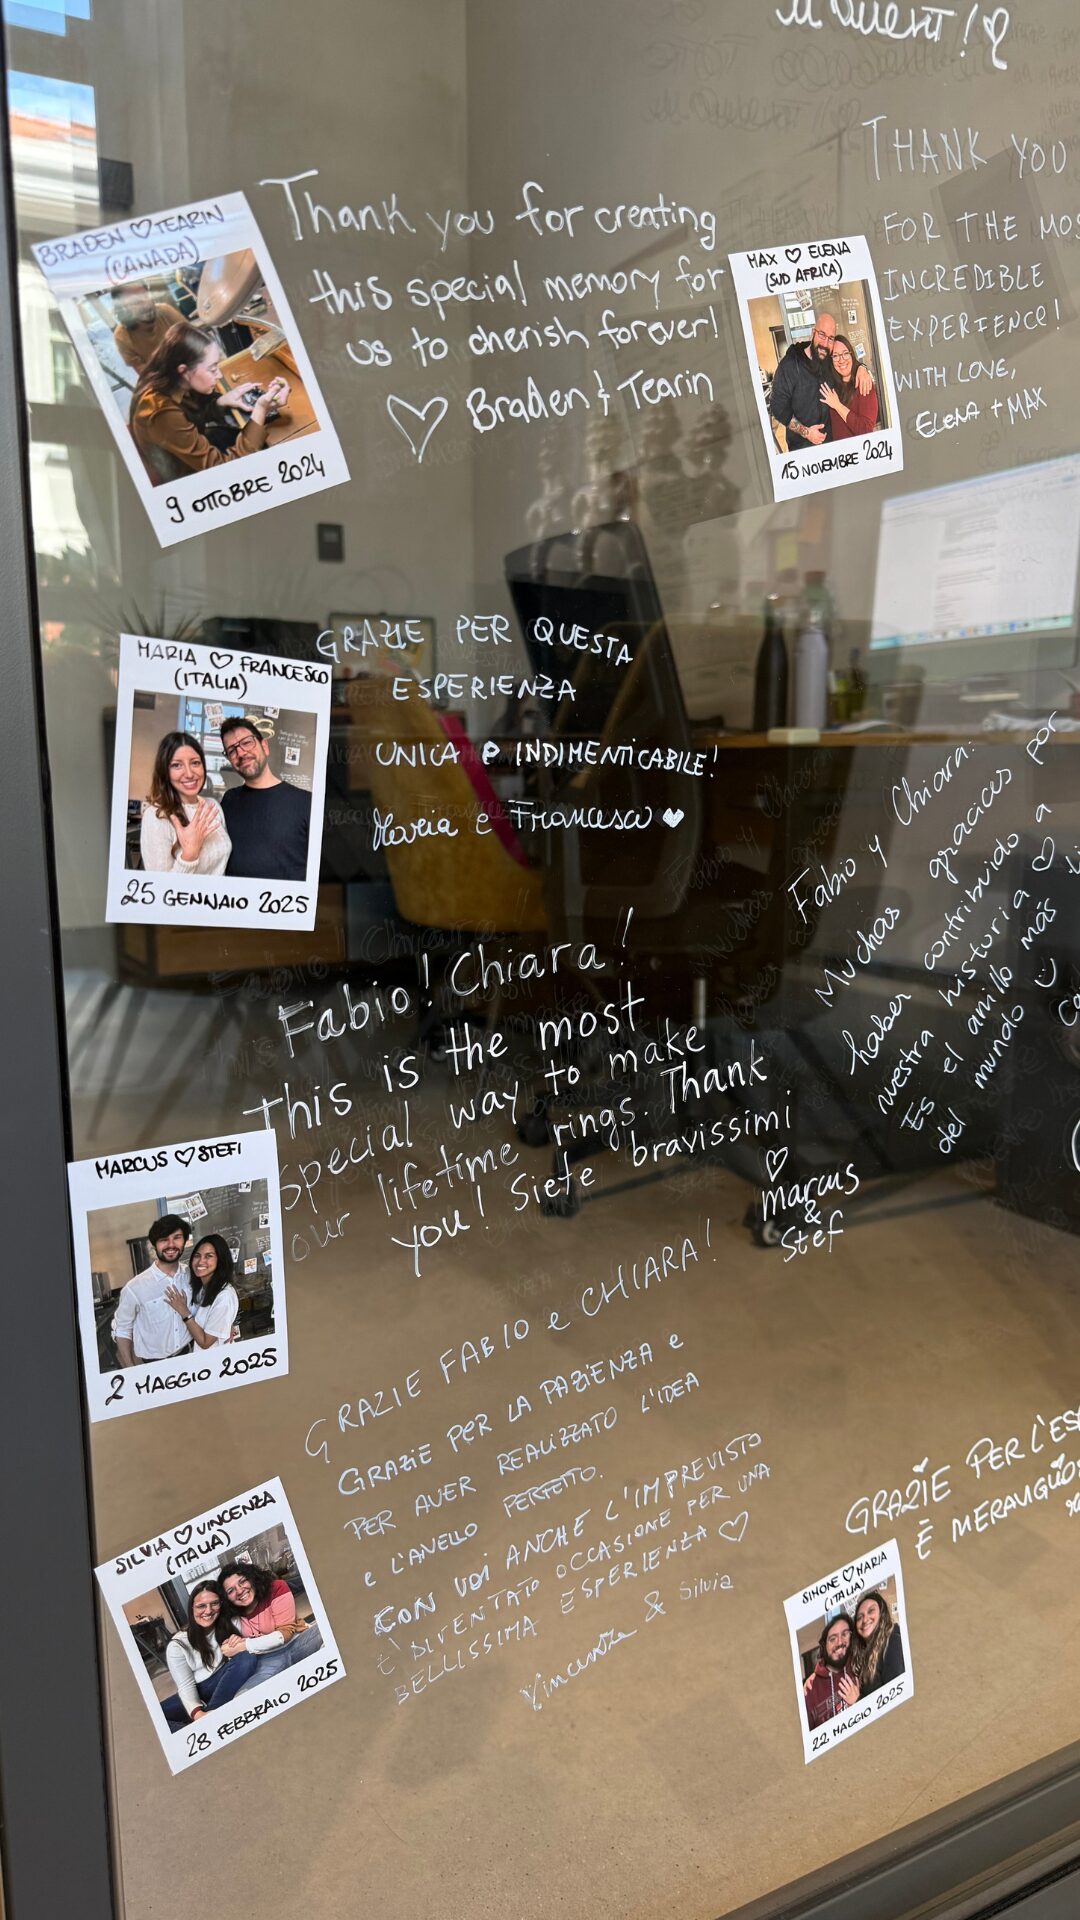 MOMENT!
BRADEN ♡ TEARIN
(CANADA)
9 OTTOBRE 2024
Thank you for creating
this special memory for
us to cherish forever!
♡ Braden & Tearin
MAX ♡ ELENA
(SUD AFRICA)
15 NOVEMBRE 2024
THANK YOU
FOR THE MOS
INCREDIBLE
EXPERIENCE!
WITH LOVE,
ELENA + MAX
MARIA ♡ FRANCESCO
(ITALIA)
25 GENNAIO 2025
GRAZIE PER QUESTA
ESPERIENZA
UNICA e INDIMENTICABILE!
Maria e Francesco ♥
Fabio y Chiara:
Muchas gracias por
haber contribuido a
nuestra historia ♡
Es el anillo más
del mundo
MARCUS ♡ STEFI
2 MAGGIO 2025
Fabio! Chiara!
This is the most
special way to make
our lifetime rings. Thank
you! Siete bravissimi
♡
marcus
&
Stef
SILVIA ♡ VINCENZA
(ITALIA)
28 FEBBRAIO 2025
GRAZIE FABIO e CHIARA!
GRAZIE PER LA PAZIENZA e
PER AVER REALIZZATO L'IDEA
e L'ANELLO PERFETTO.
CON VOI ANCHE L'IMPREVISTO
È DIVENTATO OCCASIONE PER UNA
BELLISSIMA ESPERIENZA ♡
Vincenza & Silvia
SIMONE ♡ MARIA
(ITALIA)
22 MAGGIO 2025
GRAZIE PER L'ES
È MERAVIGLIOS